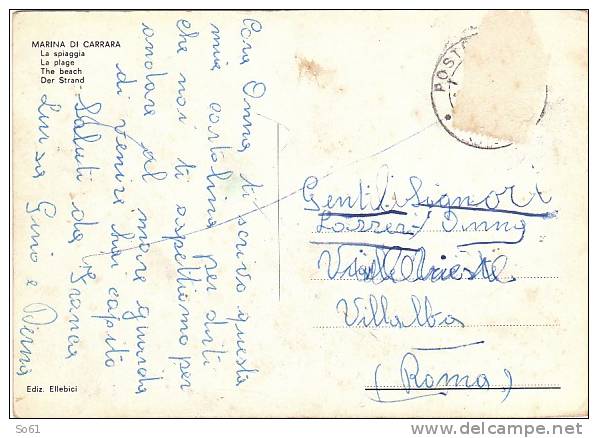 MARINA DI CARRARA
La spiaggia
La plage
The beach
Der Strand
Cara Anna ti scrivo questa
mia cartolina per dirti
che noi ti aspettiamo per
andare al mare guarda
di venire hai capito
Saluti da Franca
Luisa Gino e Pierina
POSTA
Gentili Signori
Lazzeri Anna
Viale Trieste
Villalba
(Roma)
Ediz. Ellebici
So61
www.delcampe.net